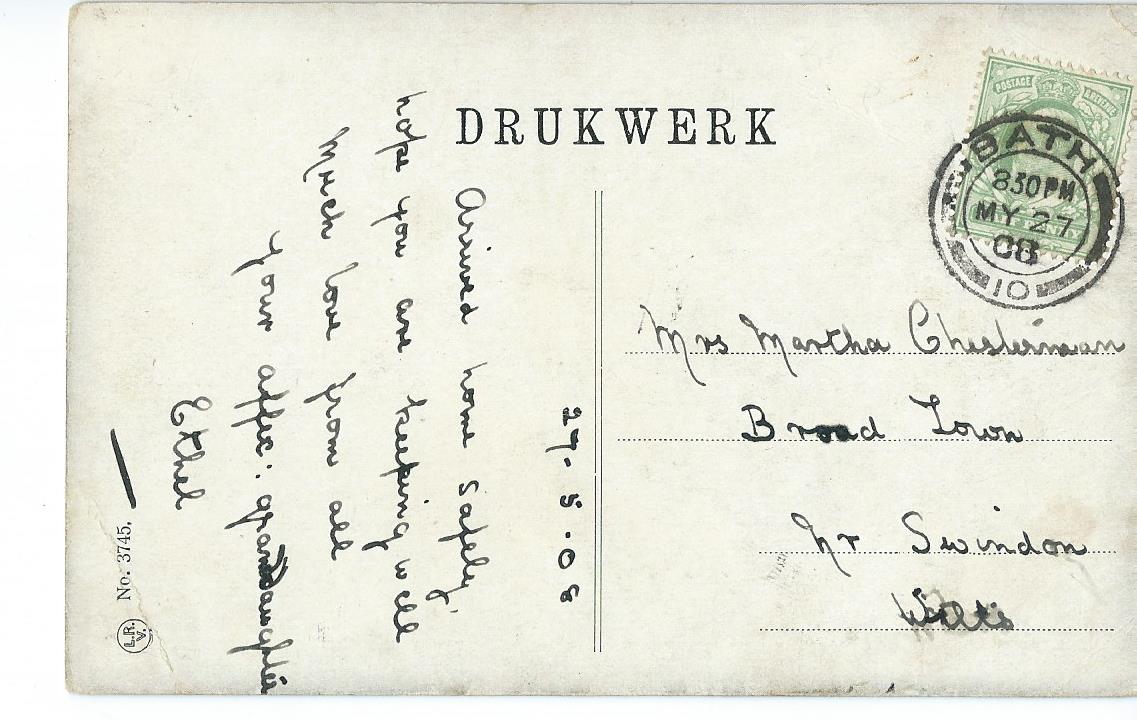 DRUKWERK
POSTAGE
BATH
830PM
MY 27
08
10
27.5.08
Arrived home safely,
hope you are keeping well
Much love from all
Your affec: grandaughter
Ethel
Mrs Martha Chesterman
Broad Town
Nr Swindon
Wilts
No. 3745.
L.R.
V.